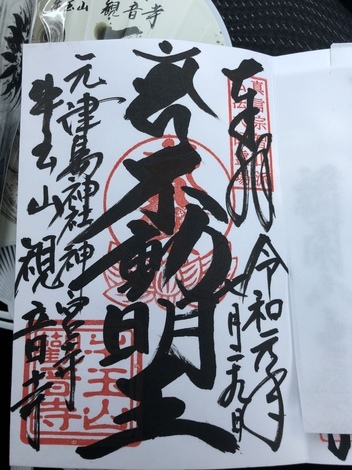 玉山 観音寺
奉拝
真言宗
令和元年
月二九日
不動明王
元津島神社神宮寺
牛玉山 観音寺
牛王山
觀音寺